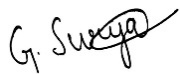 G. Surya